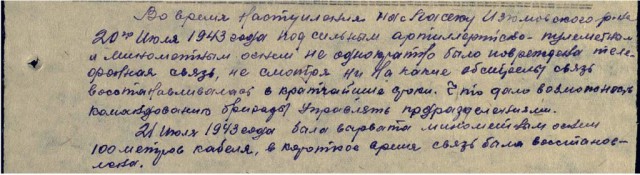 Во время наступления на Пасеку Изюмовского р-на
20го Июля 1943 года под сильным артиллерийско-пулеметном
и минометным огнем не однократно было повреждена теле-
фонная связь, не смотря ни на какие обстрелы связь
восстанавливалась в кратчайшие сроки. Что дало возможность
командованию бригады управлять подразделениями.
21 Июля 1943 года была вырвата минометным огнем
100 метров кабеля, в короткое время связь была восстанов-
лена.